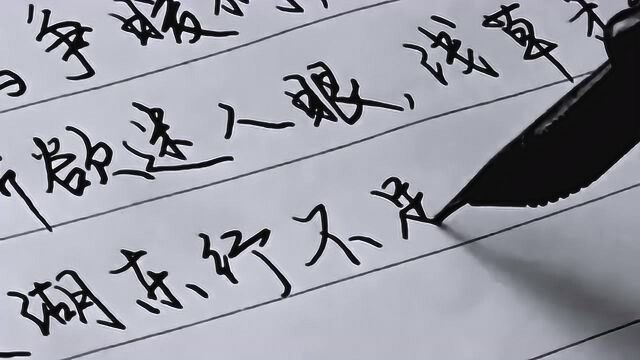 争暖
欲迷人眼，浅草
湖东行不足